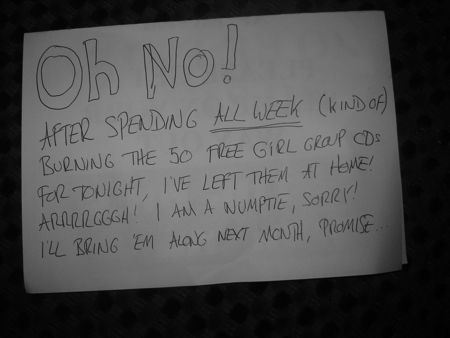 Oh No!
AFTER SPENDING ALL WEEK (KIND OF)
BURNING THE 50 FREE GIRL GROUP CDs
FOR TONIGHT, I'VE LEFT THEM AT HOME!
ARRRRGGGH! I AM A NUMPTIE, SORRY!
I'LL BRING 'EM ALONG NEXT MONTH, PROMISE...